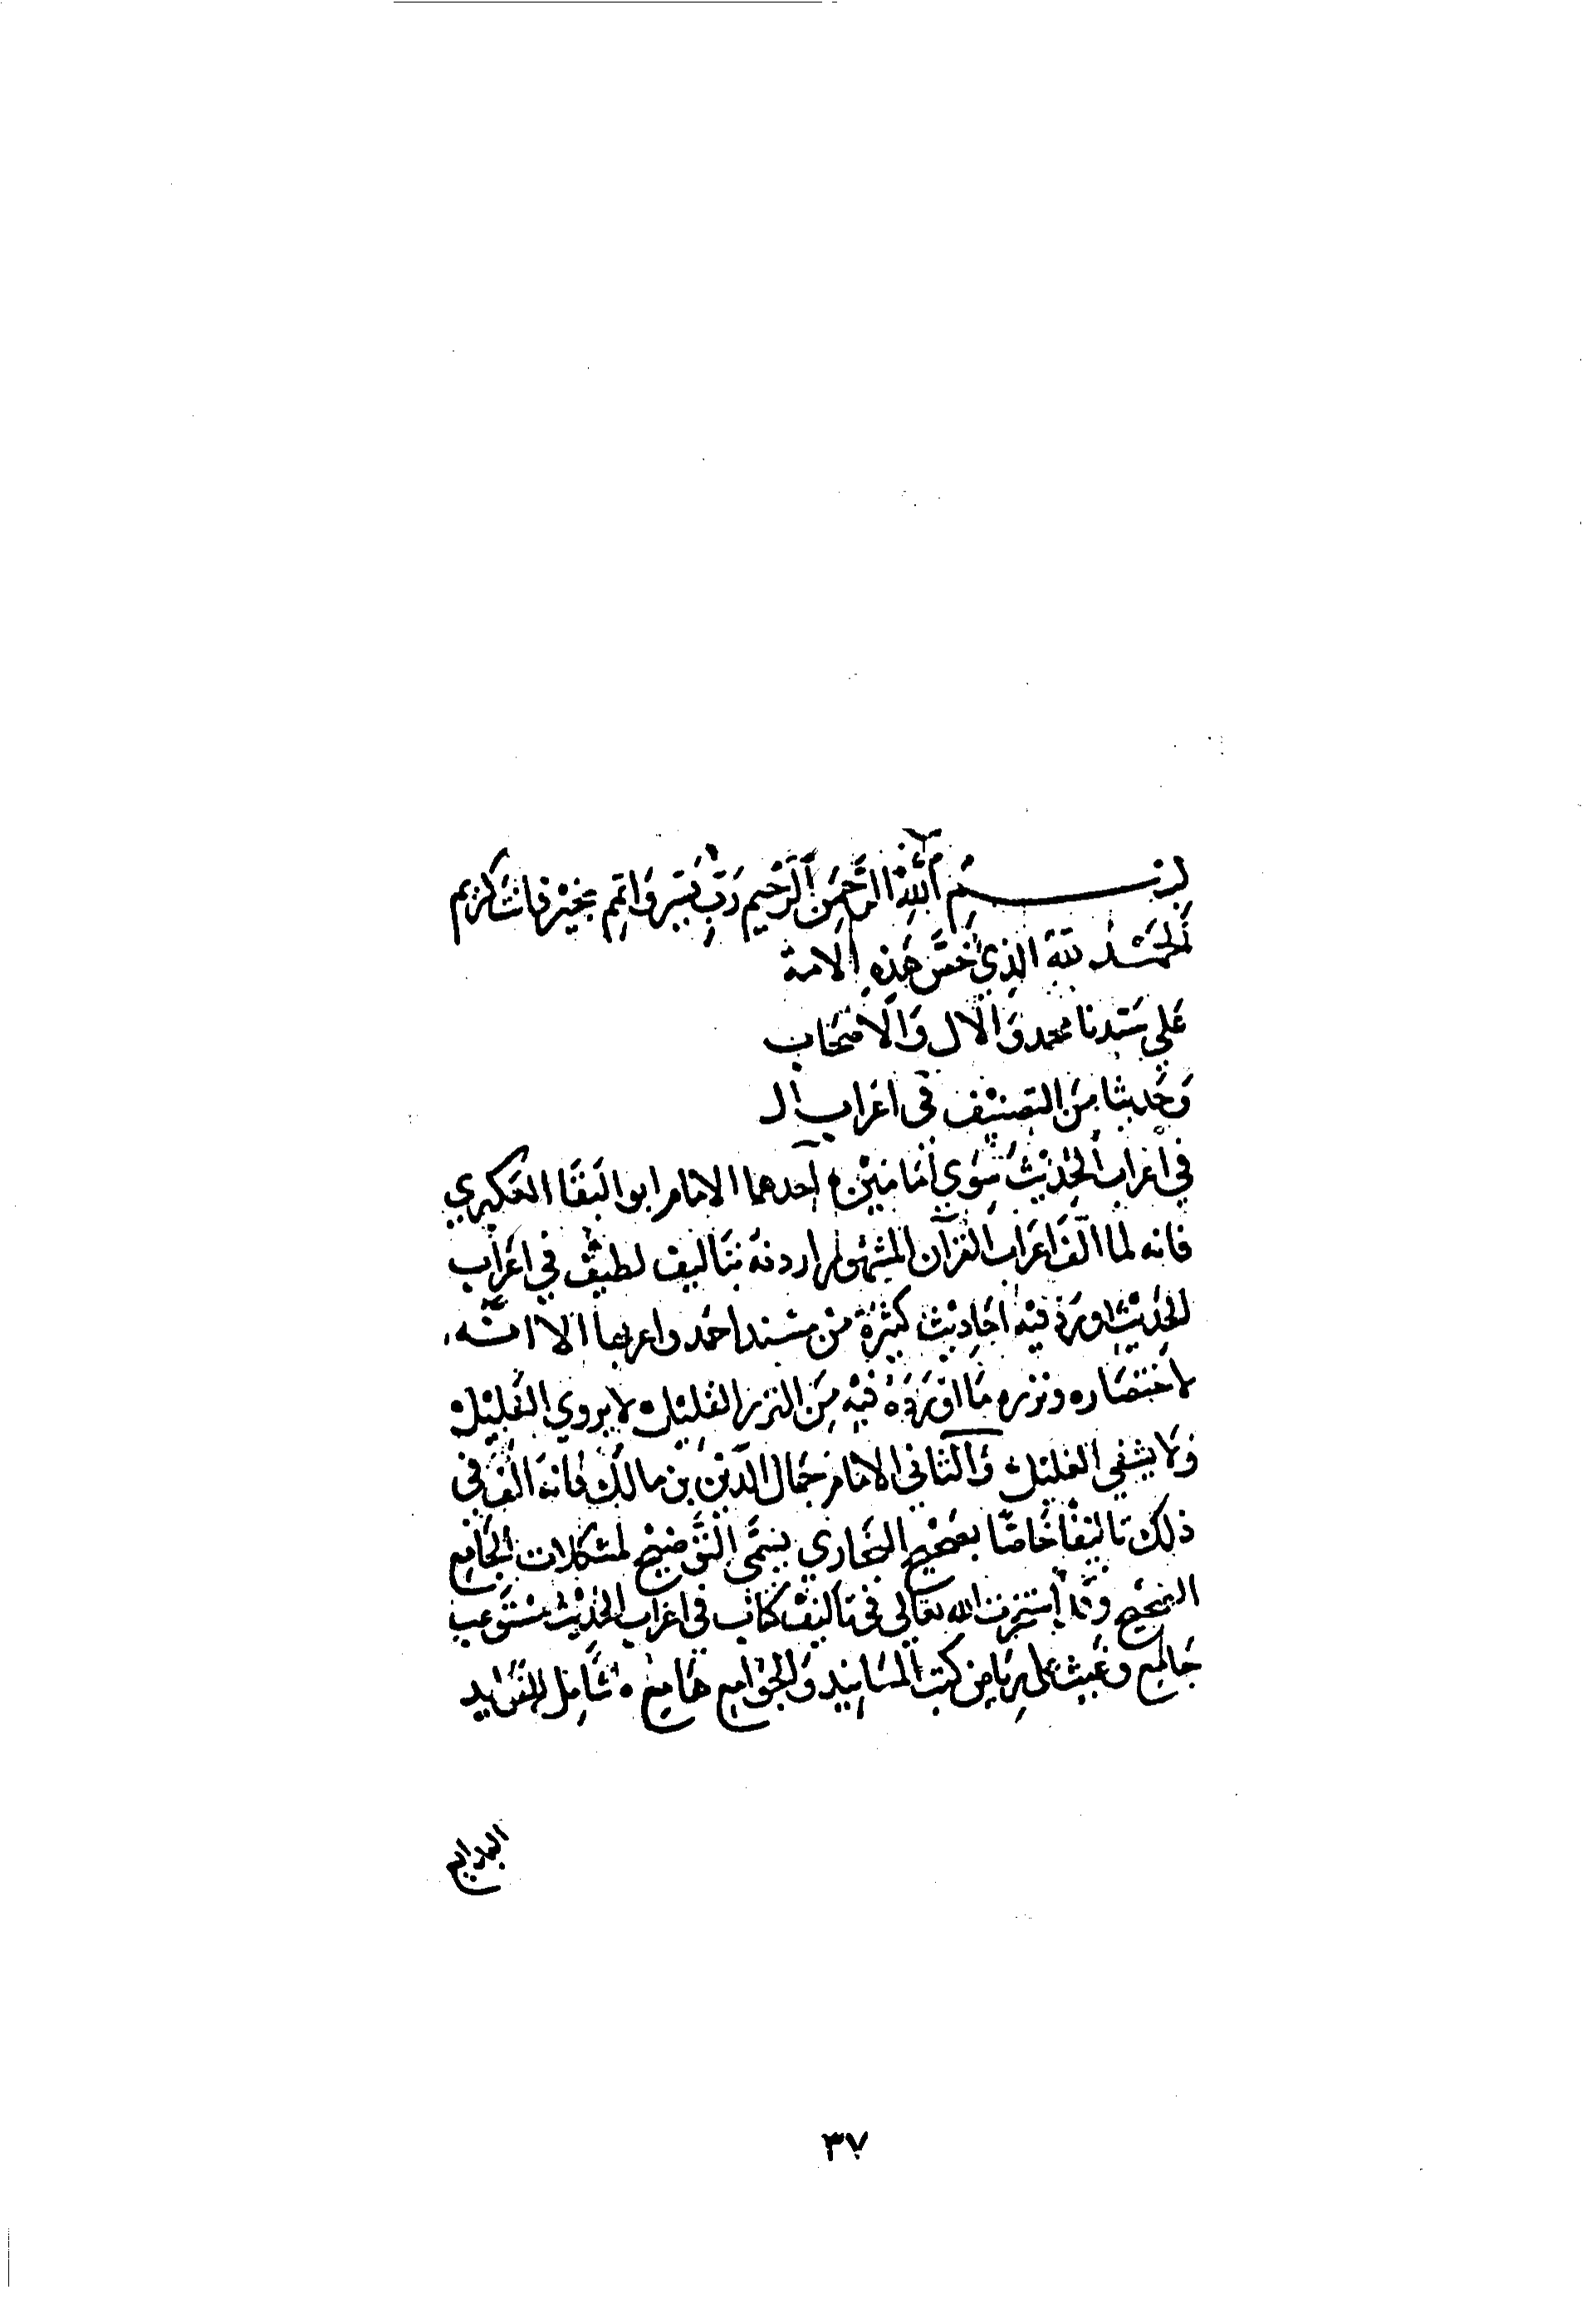 بسم الله الرحمن الرحيم رب يسر واتمم بخير فانك كريم
الحمد لله الذي خص هذه الامة
علي سيدنا محمد والال والاصحاب
وحديثا من التصنيف في اعراب ال
في اعراب الحديث سوي امامين احدهما الامام ابو البقا العكبري
فانه لما الف اعراب القرآن المشهور اردفه بتاليف لطيف في اعراب
الحديث اورد فيه احاديث كثيرة من مسند احمد واعربها الا انه
لاختصاره ونزره ما اورده فيه من النزر القليل لا يروي الغليل
ولا يشفي العليل والثاني الامام جمال الدين بن مالك فانه الف في
ذلك تاليفا خاصا بصحيح البخاري يسمى التوضيح لمشكلات الجامع
الصحيح وقد استخرت الله تعالى في تاليف كتاب في اعراب الحديث مستوعب
جامع وغيث على رياض كتب المسانيد والجوامع هامع شامل للفوايد
البدايع
٣٧